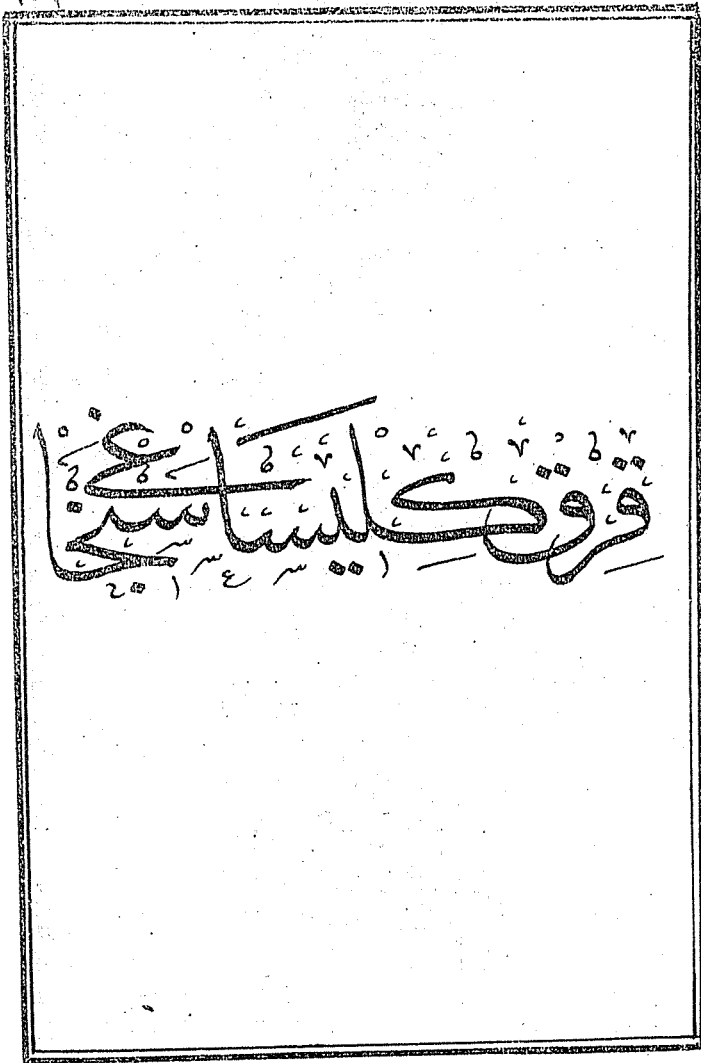 قرق كليسا سنجاغى